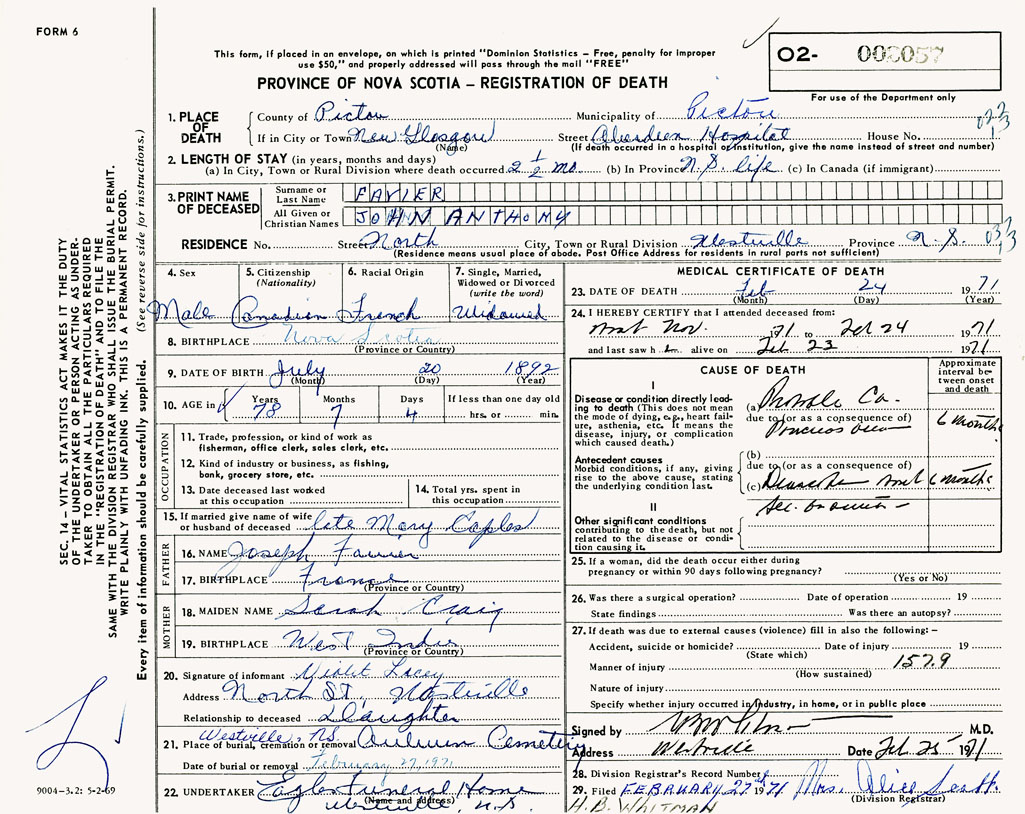 FORM 6
This form, if placed in an envelope, on which is printed "Dominion Statistics – Free, penalty for improper
use $50," and properly addressed will pass through the mail "FREE"
PROVINCE OF NOVA SCOTIA – REGISTRATION OF DEATH
02- 002057
For use of the Department only
1. PLACE OF DEATH
County of Pictou Municipality of Pictou
If in City or Town New Glasgow Street Aberdeen Hospital House No.
(Name) (If death occurred in a hospital or institution, give the name instead of street and number)
2. LENGTH OF STAY (in years, months and days)
(a) In City, Town or Rural Division where death occurred 2 1/2 mo. (b) In Province N.S. life (c) In Canada (if immigrant)
3. PRINT NAME OF DECEASED
Surname or Last Name FAVIER
All Given or Christian Names JOHN ANTHONY
RESIDENCE No. Street North City, Town or Rural Division Westville Province N.S.
(Residence means usual place of abode. Post Office Address for residents in rural parts not sufficient)
4. Sex
Male
5. Citizenship
(Nationality)
Canadian
6. Racial Origin
French
7. Single, Married,
Widowed or Divorced
(write the word)
Widowed
8. BIRTHPLACE Nova Scotia
(Province or Country)
9. DATE OF BIRTH July 20 1892
(Month) (Day) (Year)
10. AGE in
Years 78
Months 7
Days 4
If less than one day old
hrs. or min.
OCCUPATION
11. Trade, profession, or kind of work as
fisherman, office clerk, sales clerk, etc.
12. Kind of industry or business, as fishing,
bank, grocery store, etc.
13. Date deceased last worked
at this occupation
14. Total yrs. spent in
this occupation
15. If married give name of wife
or husband of deceased late Mary
FATHER
16. NAME Joseph Favier
17. BIRTHPLACE France
(Province or Country)
MOTHER
18. MAIDEN NAME Sarah Craig
19. BIRTHPLACE West Indies
(Province or Country)
20. Signature of informant Violet Lacey
Address North St., Westville
Relationship to deceased Daughter
Westville, N.S.
21. Place of burial, cremation or removal Auburn Cemetery
Date of burial or removal February 27, 1971
22. UNDERTAKER Eagles Funeral Home
(Name and address)
Westville, N.S.
MEDICAL CERTIFICATE OF DEATH
23. DATE OF DEATH Feb 24 1971
(Month) (Day) (Year)
24. I HEREBY CERTIFY that I attended deceased from:
Nov. 71 to Feb 24 1971
and last saw h alive on Feb 23 1971
CAUSE OF DEATH
Approximate
interval be-
tween onset
and death
I
Disease or condition directly lead-
ing to death (This does not mean
the mode of dying, e.g., heart fail-
ure, asthenia, etc. It means the
disease, injury, or complication
which caused death.)
(a) Ca.
due to (or as a consequence of)
6 months
Antecedent causes
Morbid conditions, if any, giving
rise to the above cause, stating
the underlying condition last.
(b)
due to (or as a consequence of)
(c) 6 months
II
Other significant conditions
contributing to the death, but not
related to the disease or condi-
tion causing it.
25. If a woman, did the death occur either during
pregnancy or within 90 days following pregnancy?
(Yes or No)
26. Was there a surgical operation? Date of operation 19
State findings Was there an autopsy?
27. If death was due to external causes (violence) fill in also the following:–
Accident, suicide or homicide? Date of injury 19
(State which)
157.9
Manner of injury
(How sustained)
Nature of injury
Specify whether injury occurred in industry, in home, or in public place
Signed by M.D.
Address Westville Date Feb 25 1971
28. Division Registrar's Record Number
29. Filed FEBRUARY 27 1971 Mrs. Alice Scott
(Division Registrar)
H.B. WHITMAN
SEC. 14 – VITAL STATISTICS ACT MAKES IT THE DUTY
OF THE UNDERTAKER OR PERSON ACTING AS UNDER-
TAKER TO OBTAIN ALL THE PARTICULARS REQUIRED
IN THE "REGISTRATION OF DEATH" AND TO FILE THE
SAME WITH THE DIVISION REGISTRAR WHO SHALL ISSUE THE BURIAL PERMIT.
WRITE PLAINLY WITH UNFADING INK. THIS IS A PERMANENT RECORD.
Every item of information should be carefully supplied. (See reverse side for instructions.)
9004-3.2: 5-2-69